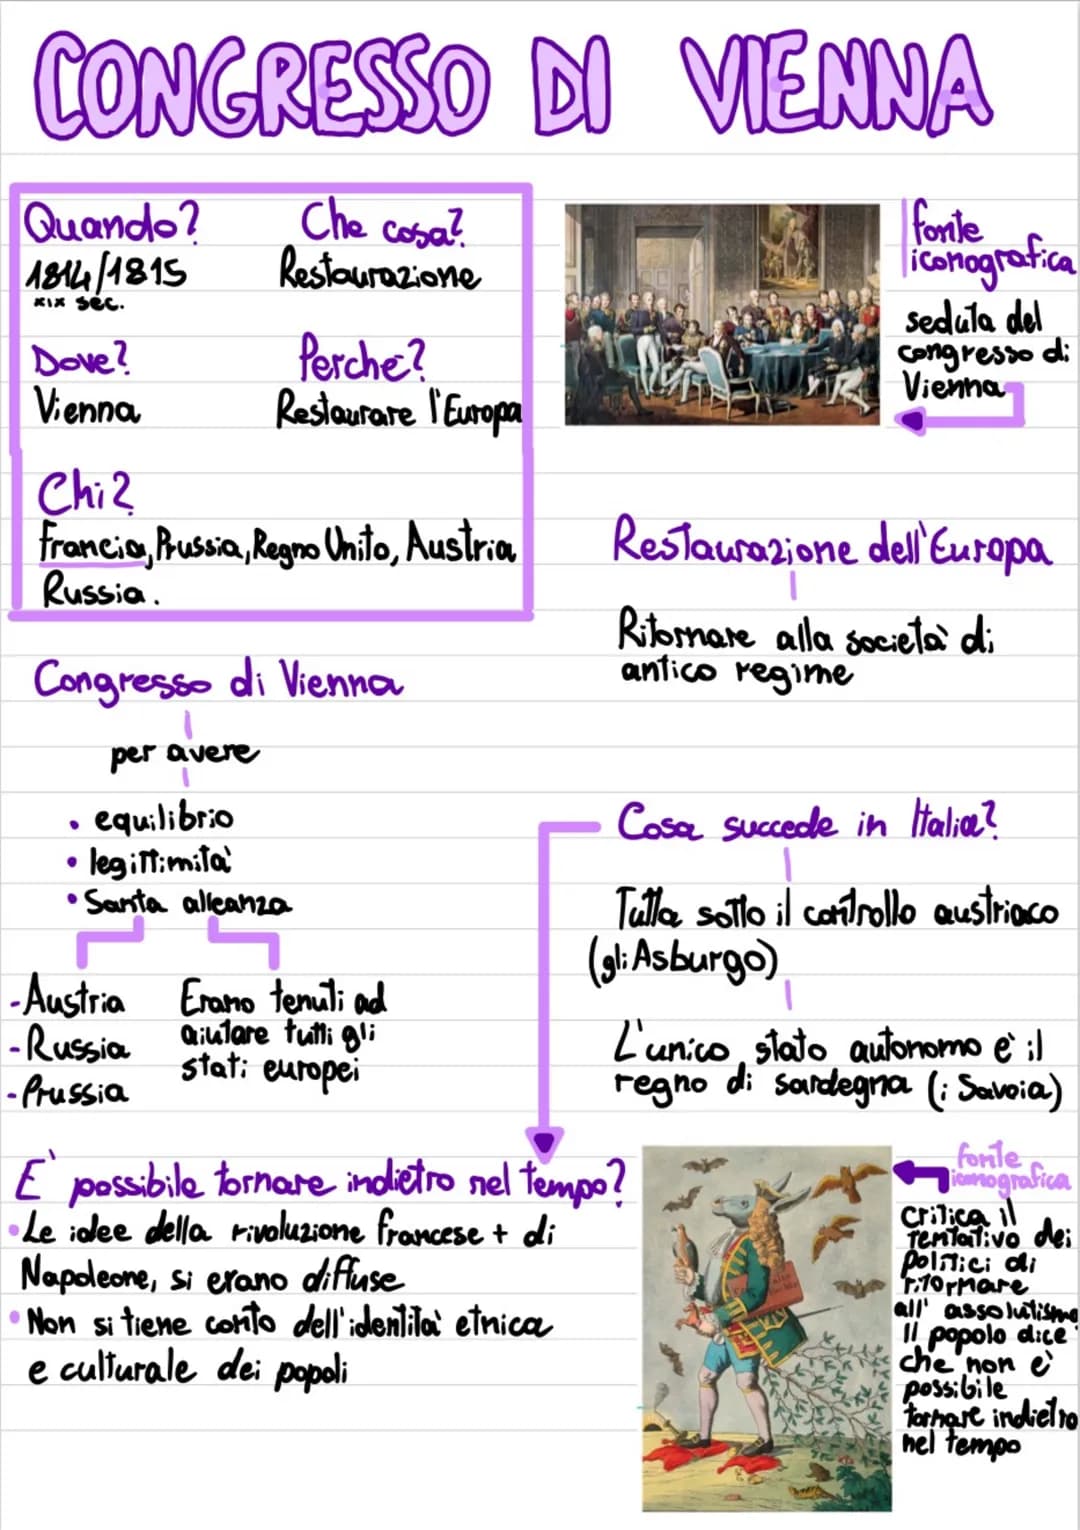 CONGRESSO DI VIENNA
Quando?
1814/1815
XIX sec.
Che cosa?
Restaurazione
Dove?
Vienna
Perche?
Restaurare l'Europa
Chi?
Francia, Prussia, Regno Unito, Austria
Russia.
fonte
iconografica
seduta del
congresso di
Vienna
Restaurazione dell'Europa
Ritornare alla società di
antico regime
Congresso di Vienna
per avere
• equilibrio
• legittimità
• Santa alleanza
-Austria
-Russia
-Prussia
Erano tenuti ad
aiutare tutti gli
stati europei
Cosa succede in Italia?
Tutta sotto il controllo austriaco
(gli Asburgo)
L'unico stato autonomo è il
regno di sardegna (i Savoia)
E' possibile tornare indietro nel tempo?
• Le idee della rivoluzione francese + di
Napoleone, si erano diffuse
• Non si tiene conto dell'identità etnica
e culturale dei popoli
fonte
iconografica
critica il
tentativo dei
politici di
ritornare
all' assolutismo
Il popolo dice
che non è
possibile
tornare indietro
nel tempo